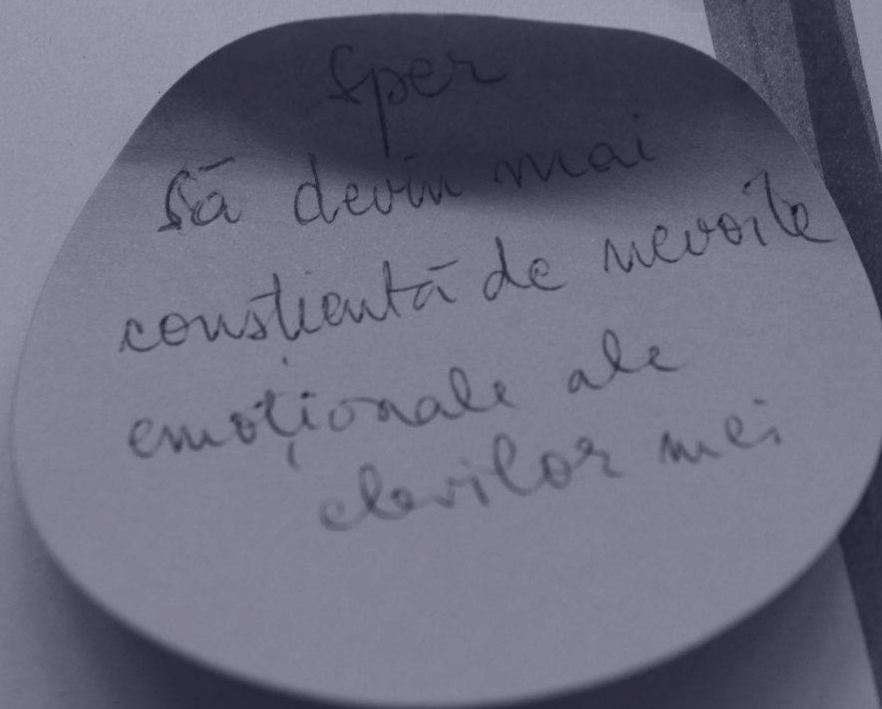 Sper
să devin mai
conștientă de nevoile
emoționale ale
elevilor mei